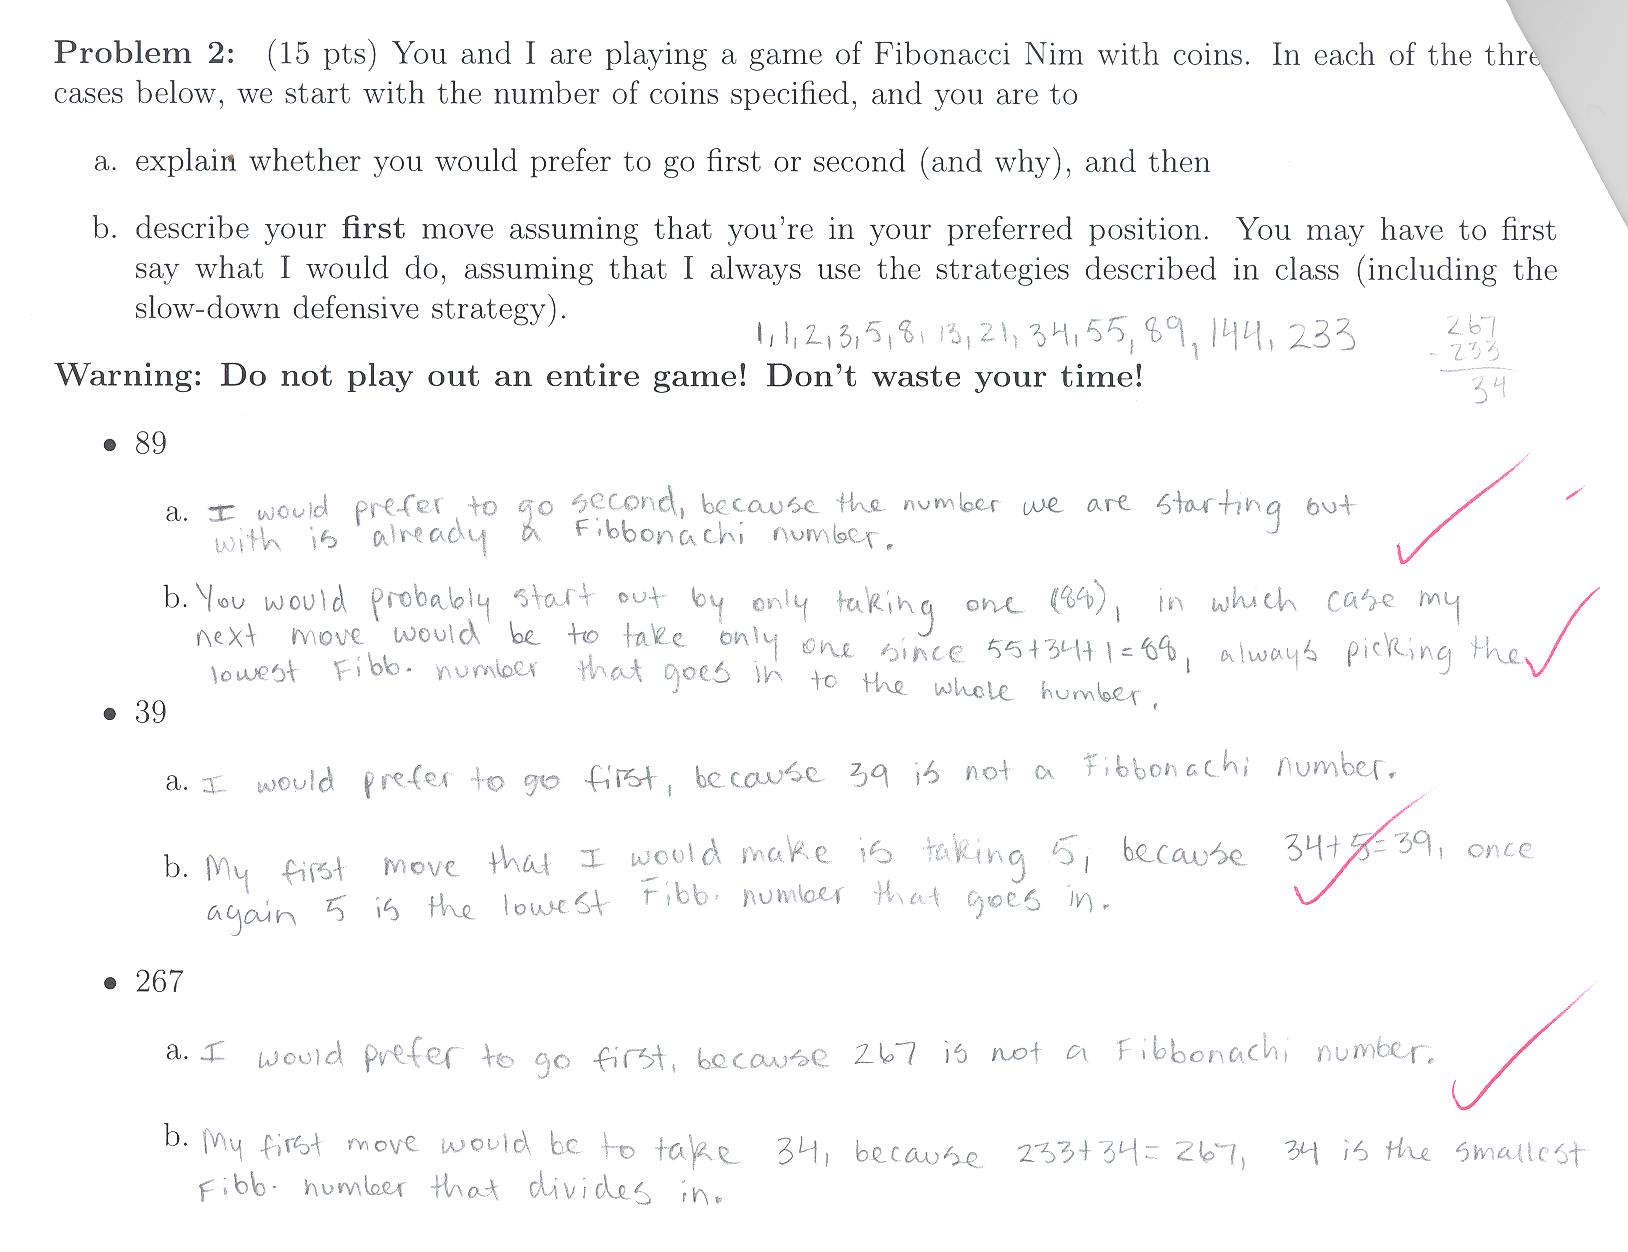 Problem 2: (15 pts) You and I are playing a game of Fibonacci Nim with coins. In each of the thre
cases below, we start with the number of coins specified, and you are to
a. explain whether you would prefer to go first or second (and why), and then
b. describe your first move assuming that you're in your preferred position. You may have to first
say what I would do, assuming that I always use the strategies described in class (including the
slow-down defensive strategy).
1, 1, 2, 3, 5, 8, 13, 21, 34, 55, 89, 144, 233
267
- 233
34
Warning: Do not play out an entire game! Don't waste your time!
• 89
a. I would prefer to go second, because the number we are starting out
with is already a Fibbonachi number.
b. You would probably start out by only taking one (88), in which case my
next move would be to take only one since 55+34+1=88, always picking the
lowest Fibb. number that goes in to the whole number.
• 39
a. I would prefer to go first, because 39 is not a Fibbonachi number.
b. My first move that I would make is taking 5, because 34+5=39, once
again 5 is the lowest Fibb. number that goes in.
• 267
a. I would prefer to go first, because 267 is not a Fibbonachi number.
b. My first move would be to take 34, because 233+34=267, 34 is the smallest
Fibb. number that divides in.